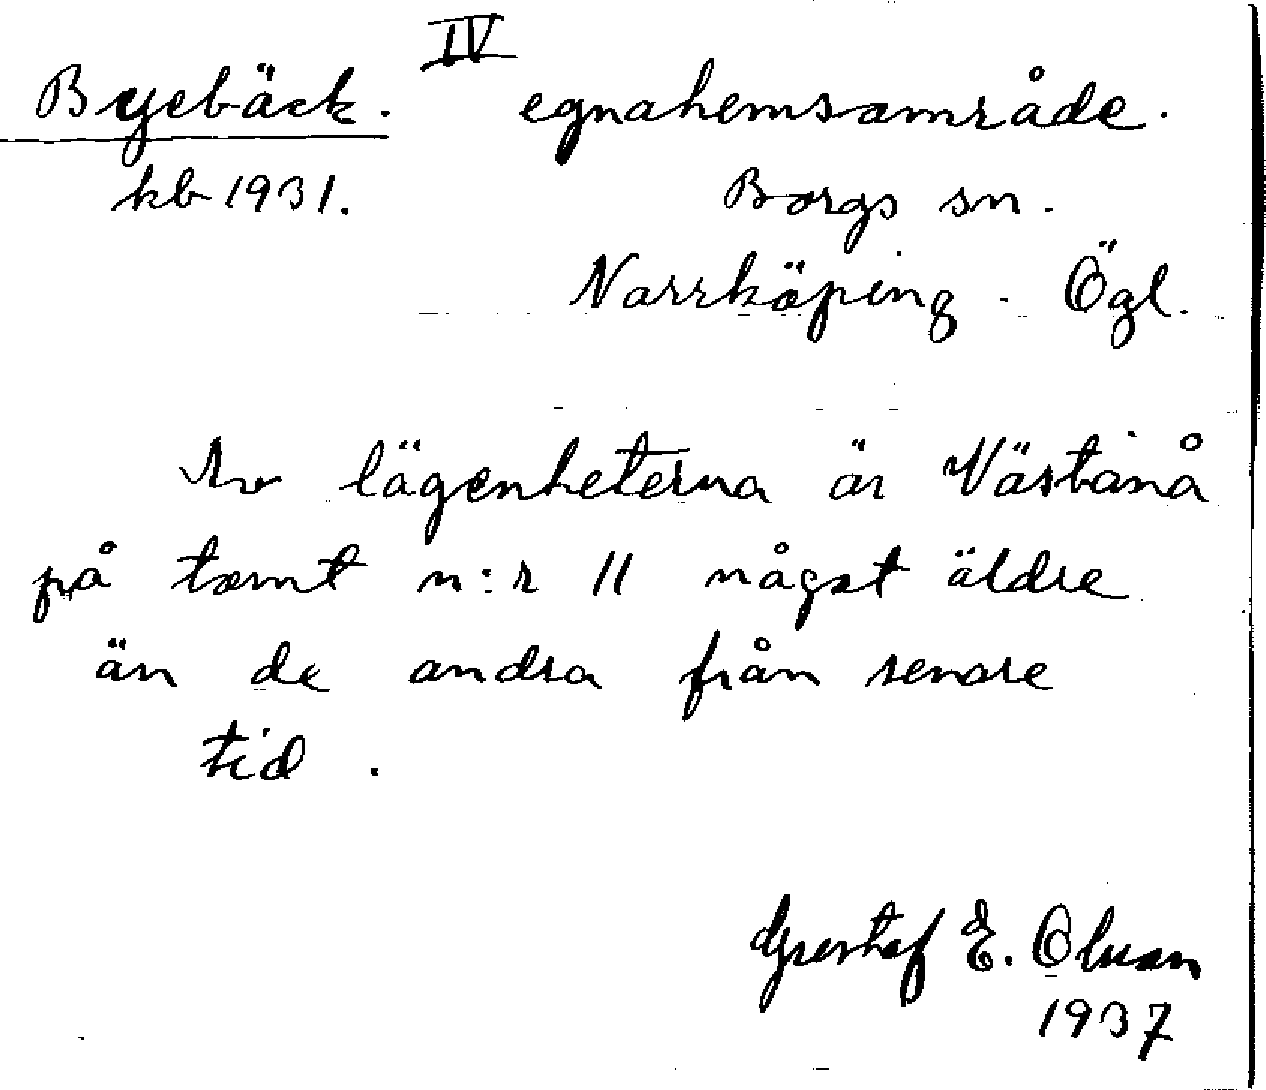 IV
Byebäck. egnahemsområde.
kb 1931. Borgs sn.
Norrköping - Ögl.
Av lägenheterna är Västanå
på tomt n:r 11 något äldre
än de andra från senare
tid.
Gustaf E. Olsson
1937